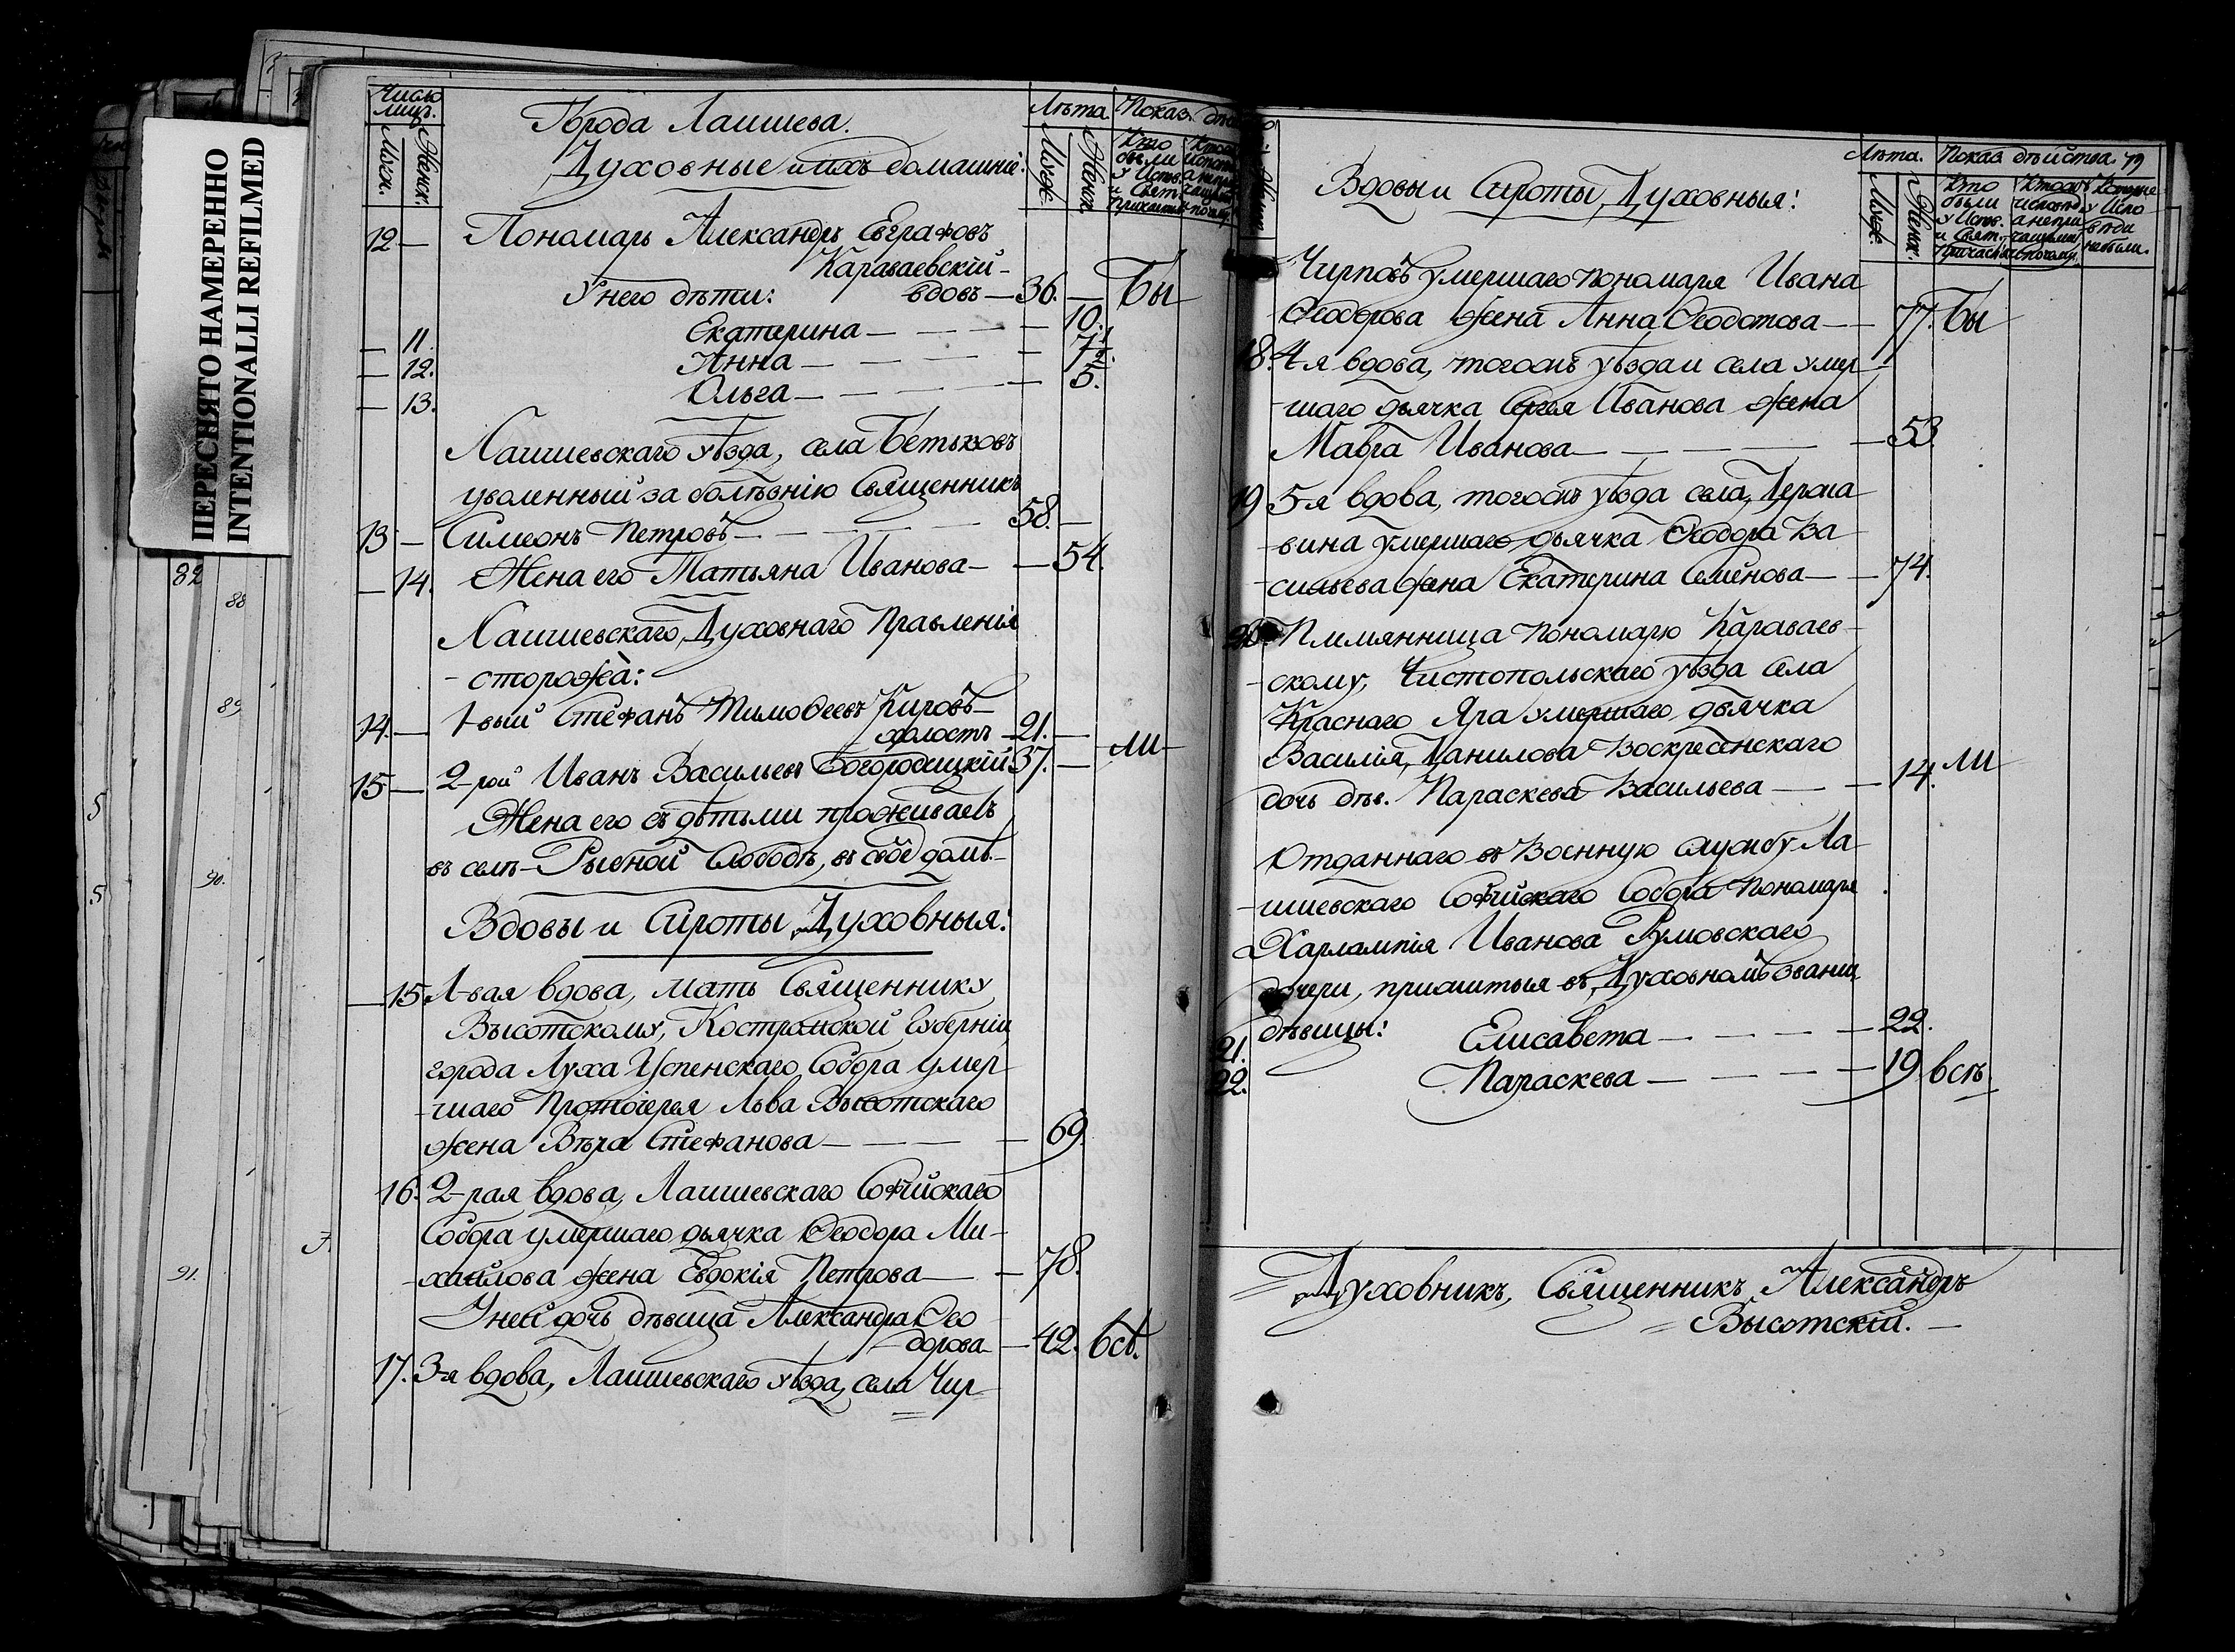 ПЕРЕСНЯТО НАМЕРЕННО
INTENTIONALLI REFILMED
82
88
89
90.
91.
Число
лицъ.
Мужск.
Женск.
Города Лаишева.
Духовные и ихъ домашніе:
Лѣта
Показ.
Муж.
Женск.
Кто
были
у Испов.
и Свят.
Причастія
12 — Пономарь Александръ Евграфовъ
Караваевскій —
У него дѣти: вдовъ — 36. — Бы
— 11. Екатерина — — — — 10.
— 12. Анна — — — — 7½.
— 13. Ольга — — — — 5.
Лаишевскаго уѣзда, села Бетьковъ
уволенный за болѣзнію Священникъ
13 — Симеонъ Петровъ — — — — 58. —
— 14. Жена его Татьяна Иванова — — 54.
Лаишевскаго Духовнаго Правленія
- сторожа:
14. — 1-вый Стефанъ Тимоѳеевъ Кировъ —
холостъ — 21. —
15 — 2-рой Иванъ Васильевъ Богородицкій 37. — ли —
Жена его съ дѣтьми проживаетъ
въ селѣ - Рыбной Слободѣ, въ своемъ домѣ. —
Вдовы и Сироты Духовныя:
— 15. 1-вая вдова, мать Священнику
Высотскому, Костромской Губерніи
города Луха Успенскаго Собора умер-
-шаго Протоіерея Льва Высотскаго
жена Вѣра Стефанова — — — — 69.
16. 2-рая вдова, Лаишевскаго Софійскаго
Собора умершаго дьячка Ѳеодора Ми-
-хайлова жена Евдокія Петрова — — 78.
У ней дочь дѣвица Александра Ѳео-
- дорова — — 42. всѣ.
17. 3-я вдова, Лаишевскаго уѣзда, села Чир-
Вдовы и Сироты Духовныя:
Лѣта.
Показ. дѣйства. 79
Муж.
Женск.
Кто
были
у Испов.
и Свят.
Причастія
Чирповъ умершаго пономаря Ивана
Ѳеодорова жена Анна Ѳеодотова — — 77. Бы
18. 4-я вдова, тогожъ уѣзда и села умер-
-шаго дьячка Сергея Иванова жена
Мавра Иванова — — — — — 53.
19 5-я вдова, тогожъ уѣзда села Держа-
-вина умершаго дьячка Ѳеодора Ва-
-сильева жена Екатерина Семенова — — 74.
20. Племянница Пономарю Караваев-
-скому, Чистопольскаго уѣзда села
Краснаго Яра умершаго дьячка
Василія Данилова Воскресенскаго
дочь дѣв. Параскева Васильева — — 14. ли
Отданнаго въ военную службу Ла-
-ишевскаго Софійскаго Собора Пономаря
Харлампія Иванова Румовскаго
дочери, прижитыя въ Духовномъ званіи,
дѣвицы:
21. Елисавета — — — — 22.
22. Параскева — — — — 19. всѣ.
Духовникъ, Священникъ Александръ
Высотскій. —